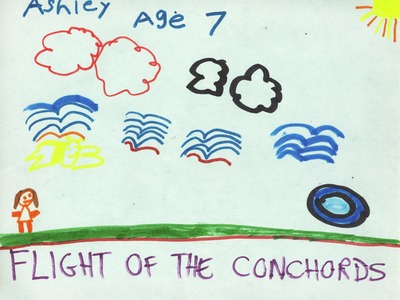 Ashley Age 7
FLIGHT OF THE CONCHORDS